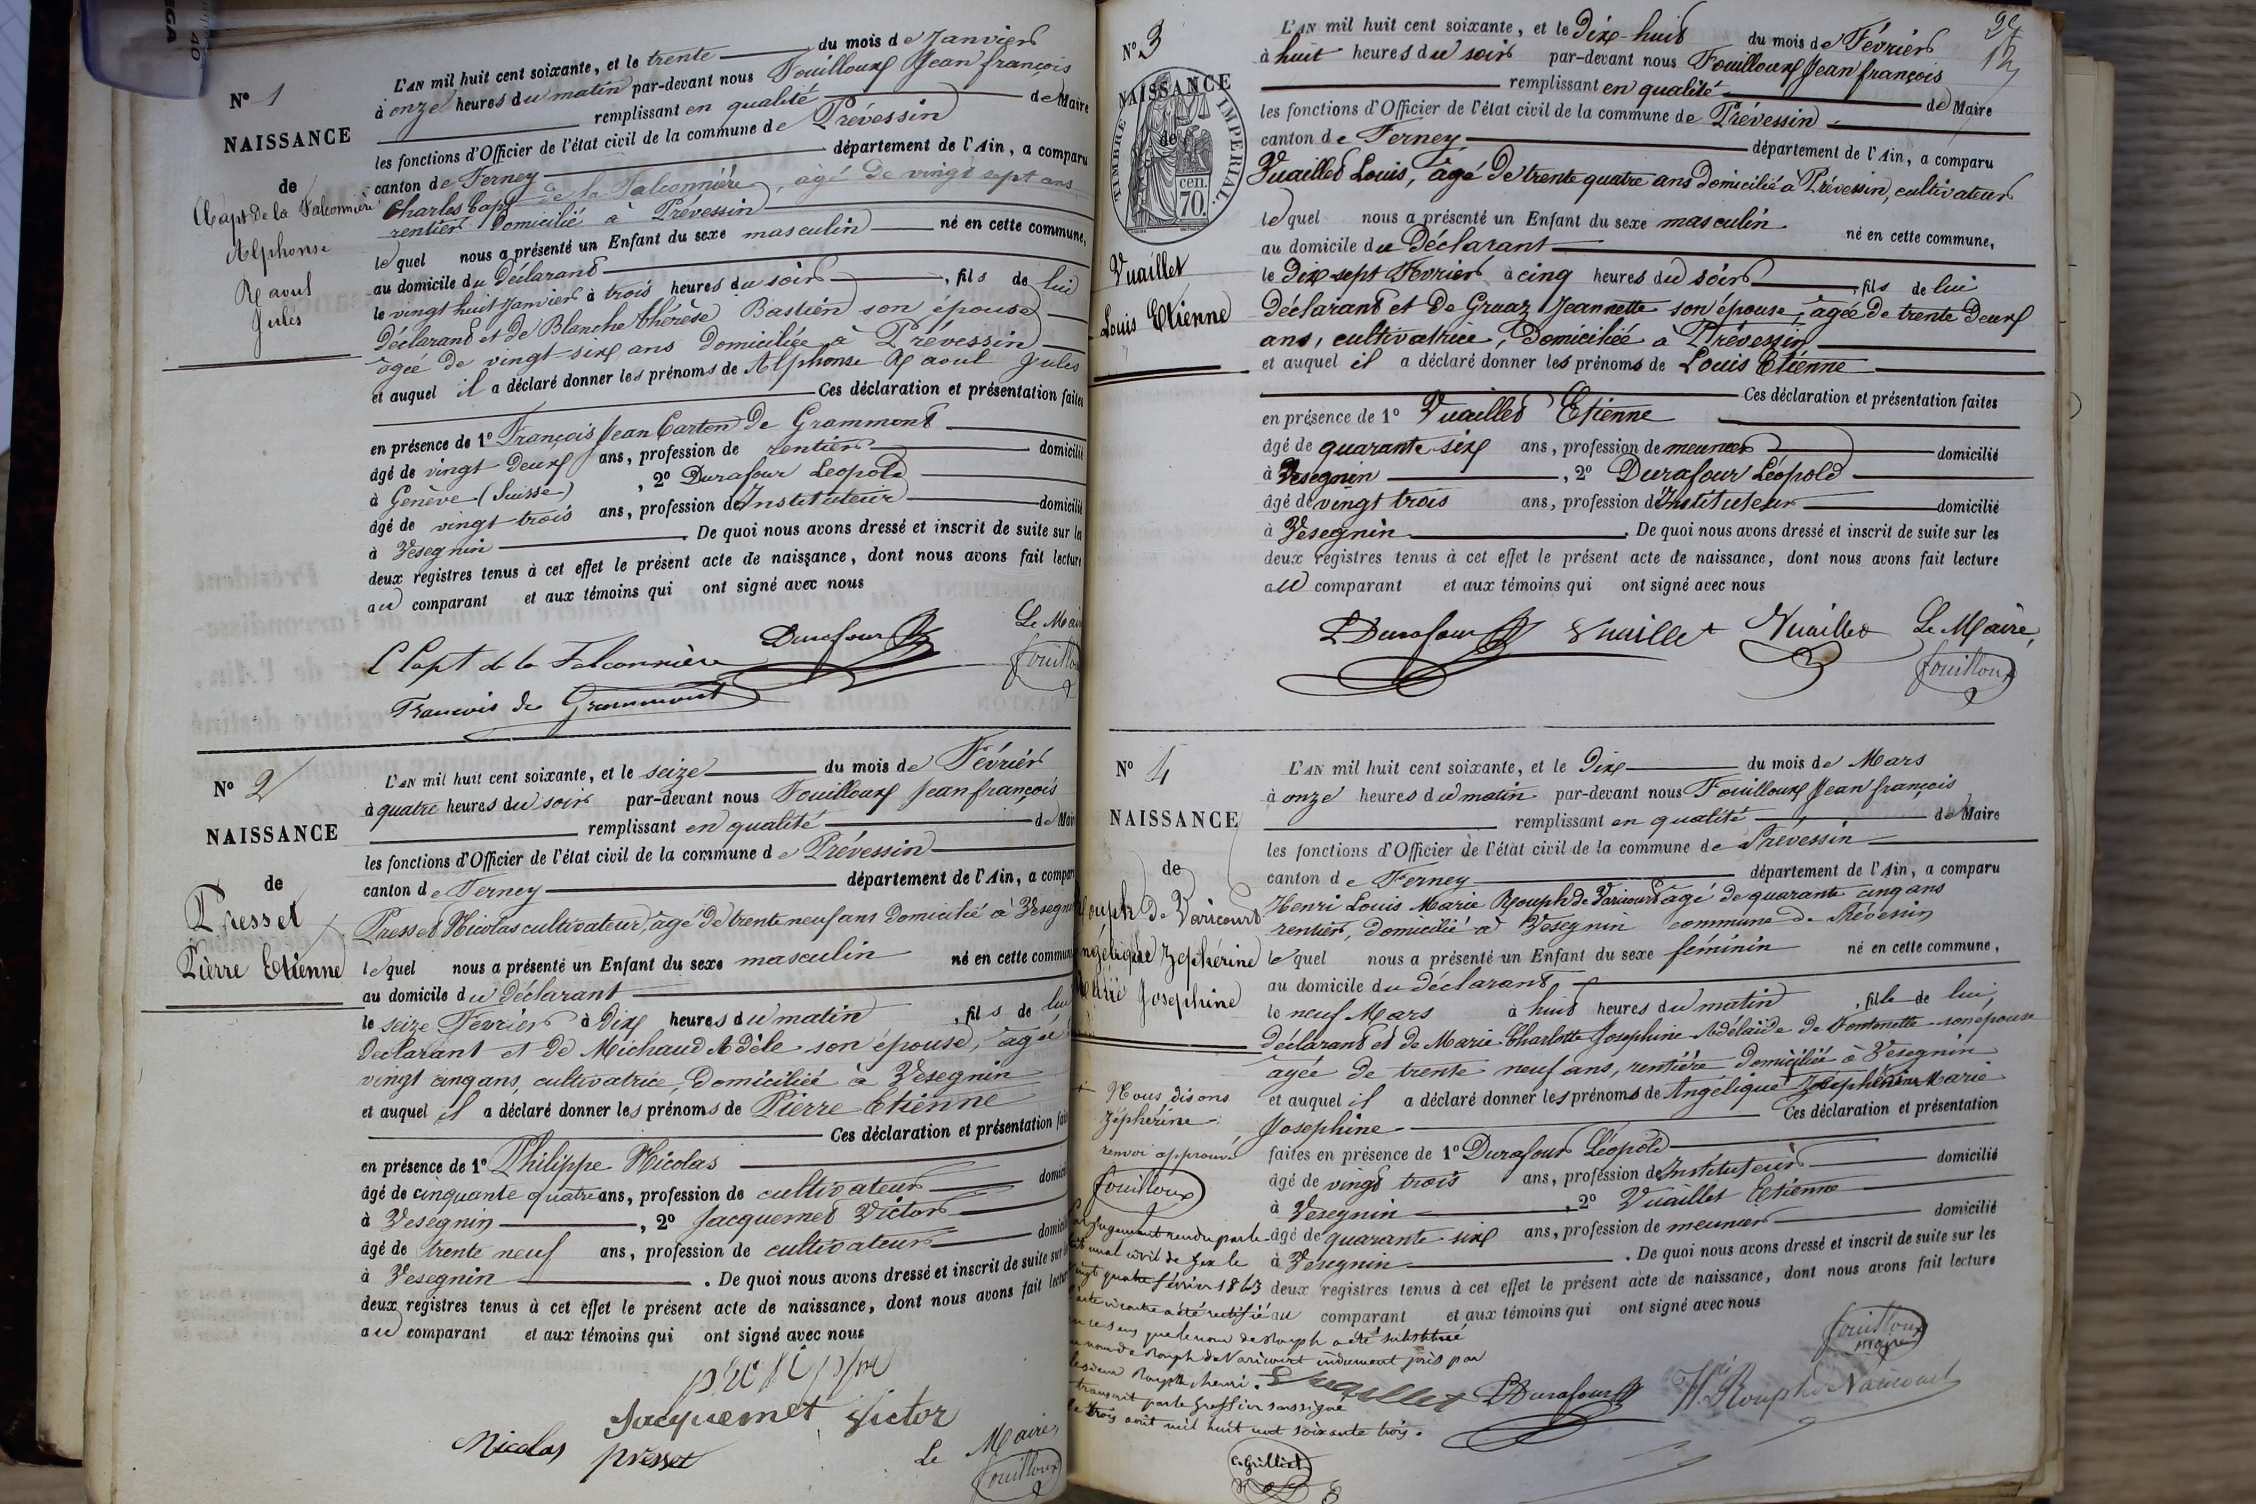 N° 1
NAISSANCE
de
Capt de la Falconnière
Alphonse
Raoul
Jules
L'AN mil huit cent soixante, et le trente du mois de Janvier
à onze heures du matin par-devant nous Fouilloux Jean françois
remplissant en qualité de Maire
les fonctions d'Officier de l'état civil de la commune de Prévessin
canton de Ferney département de l'Ain, a comparu
Charles Capt de la Falconnière, âgé de vingt sept ans
rentier domicilié à Prévessin
lequel nous a présenté un Enfant du sexe masculin né en cette commune,
au domicile du Déclarant
le vingt huit Janvier à trois heures du soir, fils de lui
déclarant et de Blanche thérèse Bastien son épouse
âgée de vingt-six ans domiciliée à Prévessin
et auquel il a déclaré donner les prénoms de Alphonse Raoul Jules
Ces déclaration et présentation faites
en présence de 1° François Jean Carton de Grammont
âgé de vingt deux ans, profession de rentier domicilié
à Genève (Suisse), 2° Durafour Léopold
âgé de vingt-trois ans, profession d'Instituteur domicilié
à Vesegnin. De quoi nous avons dressé et inscrit de suite sur les
deux registres tenus à cet effet le présent acte de naissance, dont nous avons fait lecture
au comparant et aux témoins qui ont signé avec nous
Le Mai
C Capt de la Falconnière Durafour Fouilloux
François de Grammont
N° 2
NAISSANCE
de
Presset
Pierre Etienne
L'AN mil huit cent soixante, et le seize du mois de Février
à quatre heures du soir par-devant nous Fouilloux Jean françois
remplissant en qualité de Mair
les fonctions d'Officier de l'état civil de la commune de Prévessin
canton de Ferney département de l'Ain, a compar
Presset Nicolas cultivateur, âgé de trente neuf ans domicilié à Vesegnin
lequel nous a présenté un Enfant du sexe masculin né en cette commune
au domicile du Déclarant
le seize Février à Dix heures du matin, fils de lui
déclarant et de Michaud Adèle son épouse, âgée
vingt cinq ans, cultivatrice, Domiciliée à Vesegnin
et auquel il a déclaré donner les prénoms de Pierre Etienne
Ces déclaration et présentation fai
en présence de 1° Philippe Nicolas
âgé de cinquante quatre ans, profession de cultivateur domici
à Vesegnin, 2° Jacquemet Victor
âgé de trente neuf ans, profession de cultivateur domici
à Vesegnin. De quoi nous avons dressé et inscrit de suite sur
deux registres tenus à cet effet le présent acte de naissance, dont nous avons fait lectur
au comparant et aux témoins qui ont signé avec nous
philippe
Jacquemet Victor
Nicolas presset Le Maire,
Fouilloux
N° 3
NAISSANCE
de
TIMBRE IMPÉRIAL.
cen.
70.
Vuaillet
Louis Etienne
L'AN mil huit cent soixante, et le Dix-huit du mois de Février
à huit heures du soir par-devant nous Fouilloux Jean françois
remplissant en qualité de Maire
les fonctions d'Officier de l'état civil de la commune de Prévessin
canton de Ferney département de l'Ain, a comparu
Vuaillet Louis, âgé de trente quatre ans domicilié à Prévessin, cultivateur
lequel nous a présenté un Enfant du sexe masculin né en cette commune,
au domicile du Déclarant
le Dix-sept Février à cinq heures du soir, fils de lui
déclarant et de Graaz Jeannette son épouse, âgée de trente deux
ans, cultivatrice, Domiciliée à Prévessin
et auquel il a déclaré donner les prénoms de Louis Etienne
Ces déclaration et présentation faites
en présence de 1° Vuaillet Etienne
âgé de quarante six ans, profession de meunier domicilié
à Vesegnin, 2° Durafour Léopold
âgé de vingt trois ans, profession d'Instituteur domicilié
à Vesegnin. De quoi nous avons dressé et inscrit de suite sur les
deux registres tenus à cet effet le présent acte de naissance, dont nous avons fait lecture
au comparant et aux témoins qui ont signé avec nous
LDurafour Vuaillet Vuaillet Le Maire,
Fouilloux
N° 4
NAISSANCE
de
Rouph de Varicourt
Angélique Zéphérine
Marie Josephine
L'AN mil huit cent soixante, et le Dix du mois de Mars
à onze heures du matin par-devant nous Fouilloux Jean françois
remplissant en qualité de Maire
les fonctions d'Officier de l'état civil de la commune de Prévessin
canton de Ferney département de l'Ain, a comparu
Henri Louis Marie Rouph de Varicourt âgé de quarante cinq ans
rentier, domicilié à Vesegnin commune de Prévessin
lequel nous a présenté un Enfant du sexe féminin né en cette commune,
au domicile du déclarant
le neuf Mars à huit heures du matin, fille de lui,
déclarant et de Marie Charlotte Josephine Adélaïde de Fontenette son épouse
âgée de trente neuf ans, rentière domiciliée à Vesegnin
et auquel il a déclaré donner les prénoms de Angélique Zéphérine Marie
Josephine Ces déclaration et présentation
faites en présence de 1° Durafour Léopold
âgé de vingt trois ans, profession d'Instituteur domicilié
à Vesegnin, 2° Vuaillet Etienne
âgé de quarante six ans, profession de meunier domicilié
à Vesegnin. De quoi nous avons dressé et inscrit de suite sur les
deux registres tenus à cet effet le présent acte de naissance, dont nous avons fait lecture
au comparant et aux témoins qui ont signé avec nous
+ Nous disons
Zéphérine
renvoi approuvé
Fouilloux
Par Jugement rendu par le
tribunal civil de Gex le
vingt quatre février 1863
l'acte ci contre a été rectifié
en ce sens que le nom de Rouph a été substitué
au nom de Rouph de Varicourt indument pris par
le sieur Rouph henri.
transcrit par le Greffier soussigné
le trois août mil huit cent soixante trois.
Vuaillet LDurafour Hri Rouph de Varicourt
Fouilloux
maire